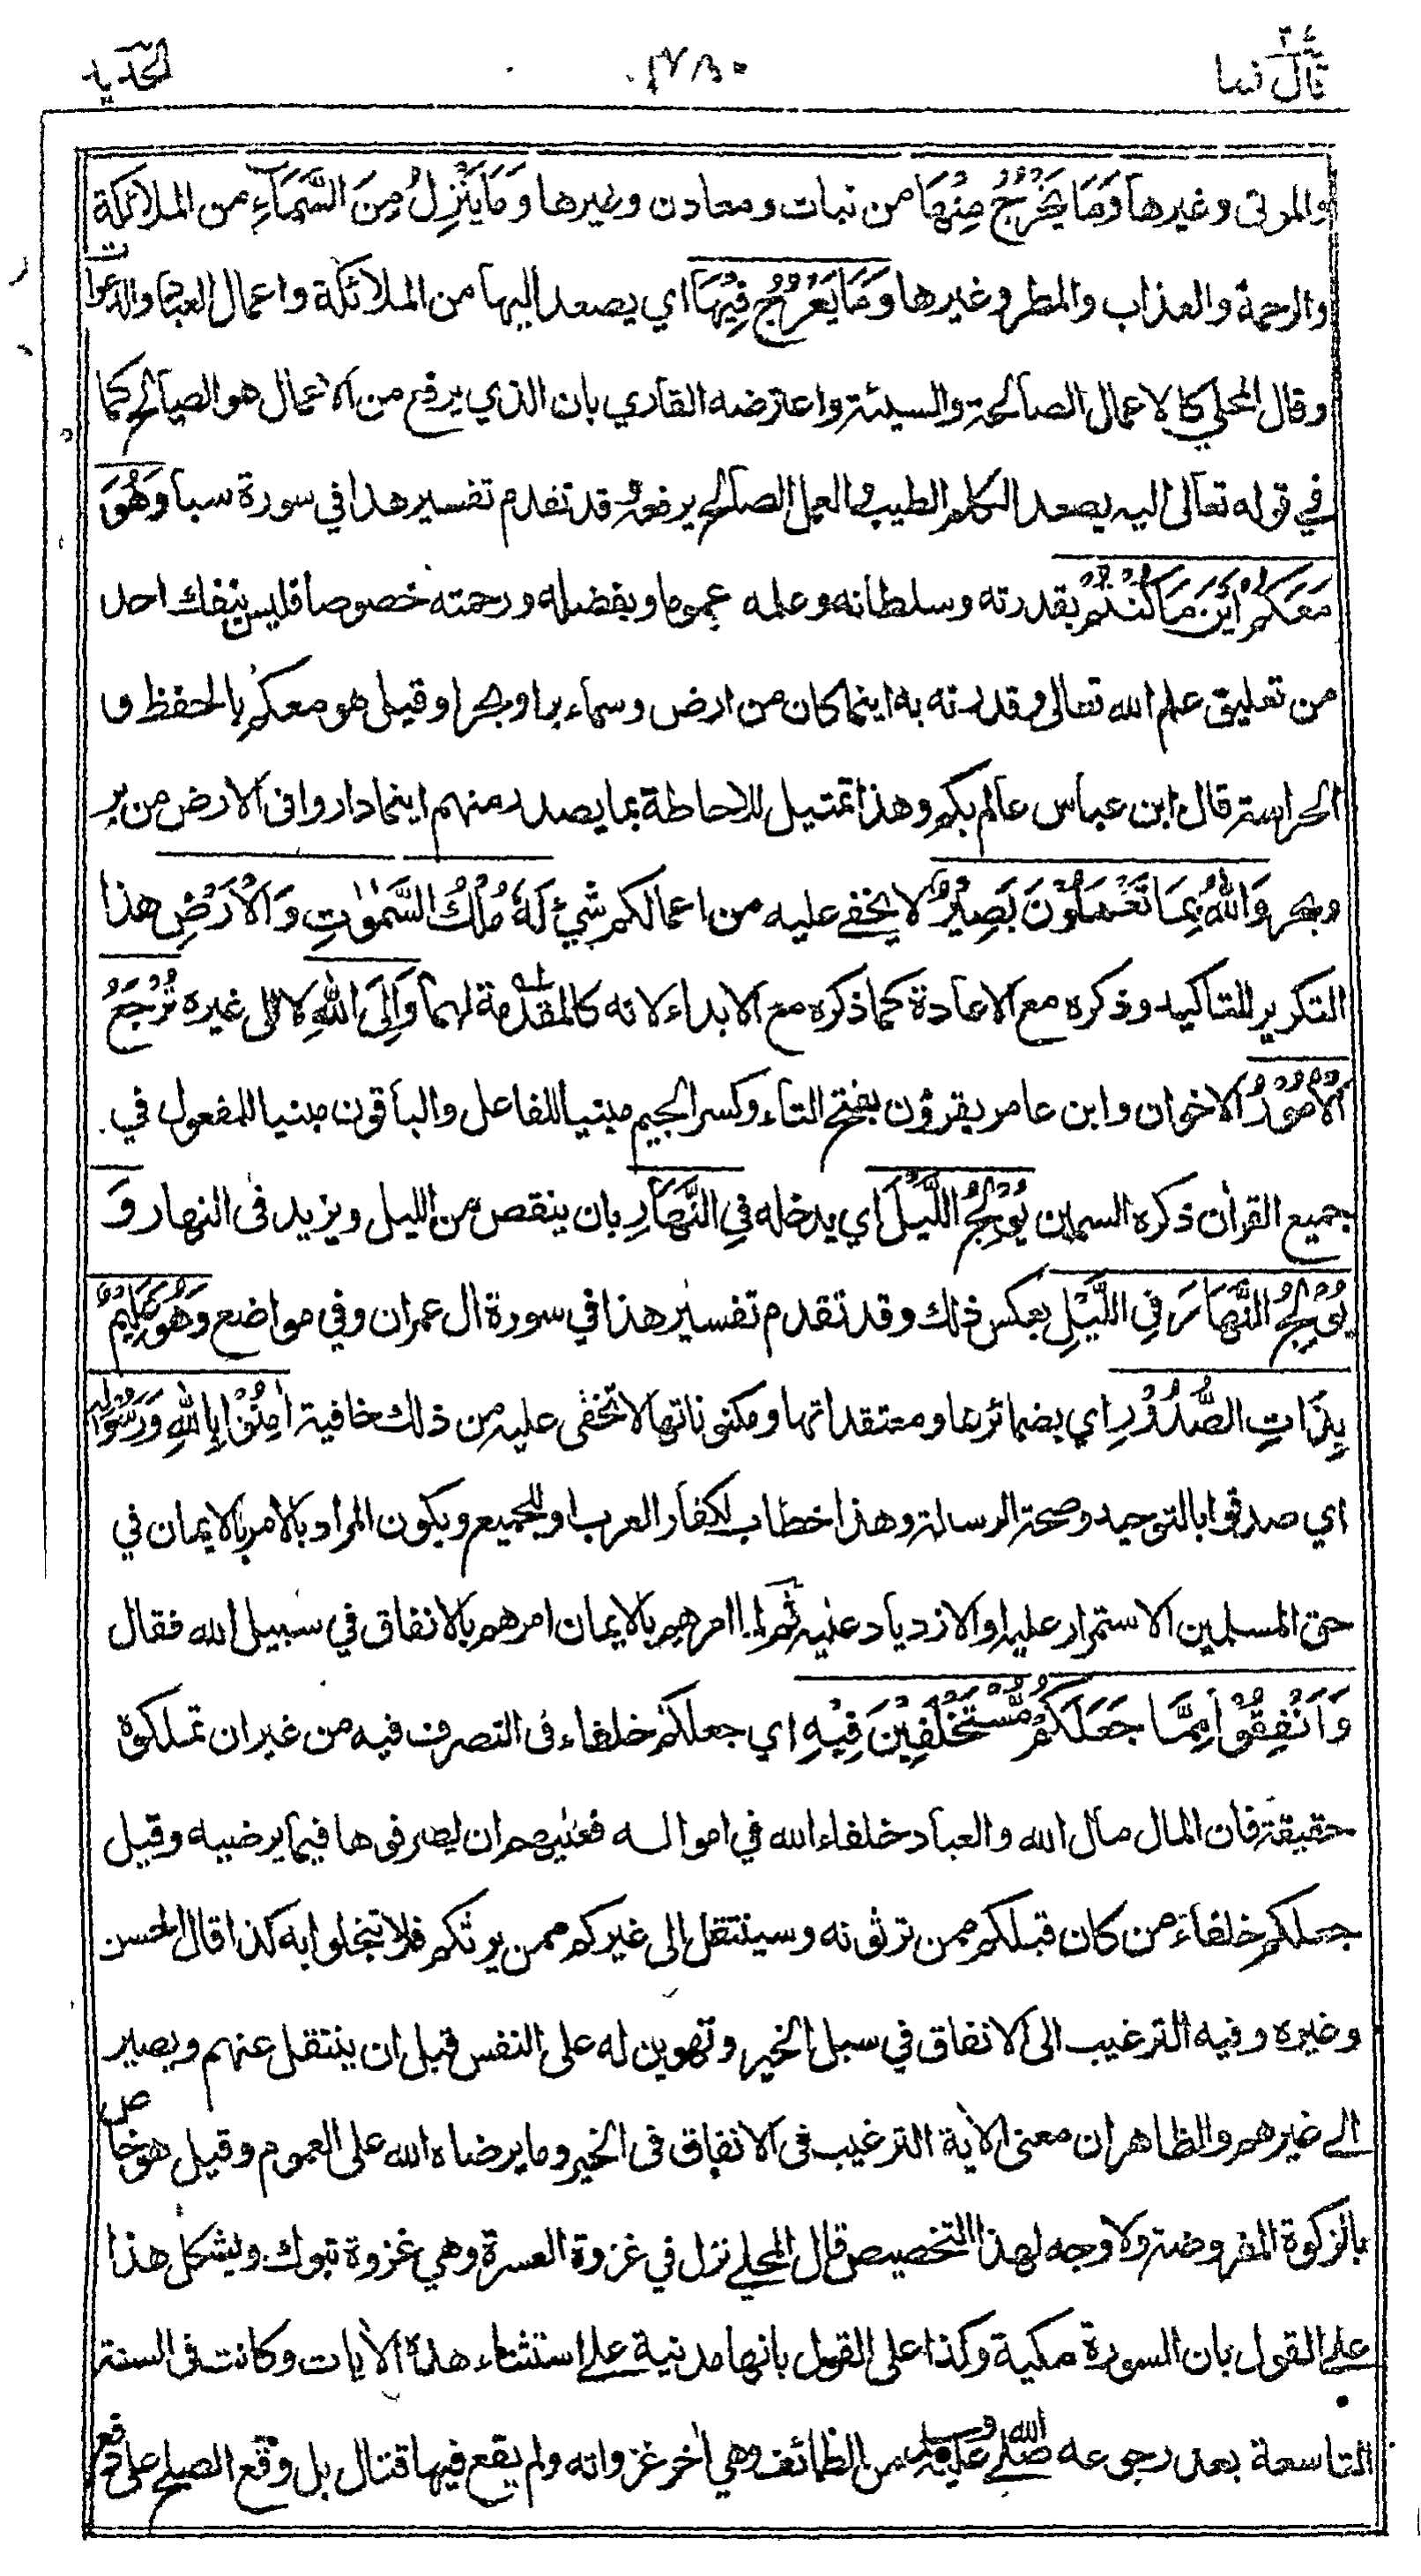 قال فما ٢٤ ٢٧٨٠ الحديد
والموتى وغيرها وَمَا يَخْرُجُ مِنْهَا من نبات ومعادن وغيرها وَمَا يَنْزِلُ مِنَ السَّمَآءِ من الملائكة
والرحمة والعذاب والمطر وغيرها وَمَا يَعْرُجُ فِيْهَا اي يصعد اليها من الملائكة واعمال العباد والدعوات
وقال المحلي كالاعمال الصالحة والسيئة واعترضه القاري بان الذي يرفع من الاعمال هو الصالح كما
في قوله تعالى اليه يصعد الكلم الطيب والعمل الصالح يرفعه وقد تقدم تفسير هذا في سورة سبا وَهُوَ
مَعَكُمْ اَيْنَ مَا كُنْتُمْ بقدرته وسلطانه وعلمه عموما وبفضله ورحمته خصوصا فليس ينفك احد
من تعليق علم الله تعالى وقدرته به اينما كان من ارض وسماء برا وبحرا وقيل هو معكم بالحفظ و
الحراسة قال ابن عباس عالم بكم وهذا تمثيل للاحاطة بما يصدر منهم اينما داروا في الارض من بر
وبحر وَاللهُ بِمَا تَعْمَلُوْنَ بَصِيْرٌ لا يخفى عليه من اعمالكم شيئ لَهٗ مُلْكُ السَّمٰوٰتِ وَالْاَرْضِ هذا
التكرير للتاكيد وذكره مع الاعادة كما ذكره مع الابداء لانه كالمقدمة لهما وَاِلَى اللهِ لا الى غيره تُرْجَعُ
الْاُمُوْرُ الاخوان وابن عامر يقرؤن بفتح التاء وكسر الجيم مبنيا للفاعل والباقون مبنيا للمفعول في
جميع القرأن ذكره السمين يُوْلِجُ اللَّيْلَ اي يدخله فِي النَّهَارِ بان ينقص من الليل ويزيد في النهار وَ
يُوْلِجُ النَّهَارَ فِي اللَّيْلِ بعكس ذلك وقد تقدم تفسير هذا في سورة ال عمران وفي مواضع وَهُوَ عَلِيْمٌ
بِذَاتِ الصُّدُوْرِ اي بضمائرها ومعتقداتها ومكنوناتها لا تخفى عليه من ذلك خافية اٰمِنُوْا بِاللهِ وَرَسُوْلِهٖ
اي صدقوا بالتوحيد وصحة الرسالة وهذا خطاب لكفار العرب او للجميع ويكون المراد بالامر بالايمان في
حق المسلمين الاستمرار عليه او الازدياد عنيه ثم لما امرهم بالايمان امرهم بالانفاق في سبيل الله فقال
وَاَنْفِقُوْا مِمَّا جَعَلَكُمْ مُّسْتَخْلَفِيْنَ فِيْهِ اي جعلكم خلفاء في التصرف فيه من غير ان تملكوه
حقيقة فان المال مال الله والعباد خلفاء الله في امواله فعليهم ان يصرفوها فيما يرضيه وقيل
جعلكم خلفاء من كان قبلكم ممن ترثونه وسينتقل الى غيركم ممن يرثكم فلا تبخلوا به كذا قال الحسن
وغيره وفيه الترغيب الى الانفاق في سبل الخير وتهوين له على النفس قبل ان ينتقل عنهم ويصير
الى غيرهم والظاهر ان معنى الأية الترغيب في الانفاق في الخير وما يرضاه الله على العموم وقيل هو خاص
بالزكوة المفروضة ولا وجه لهذا التخصيص قال المحلي نزل في غزوة العسرة وهي غزوة تبوك ويشكل هذا
على القول بان السورة مكية وكذا على القول بانها مدنية على استثناء هذه الأيات وكانت في السنة
التاسعة بعد رجوعه صلى الله عليه وسلم من الطائف وهي أخر غزواته ولم يقع فيها قتال بل وقع الصلح على دفع